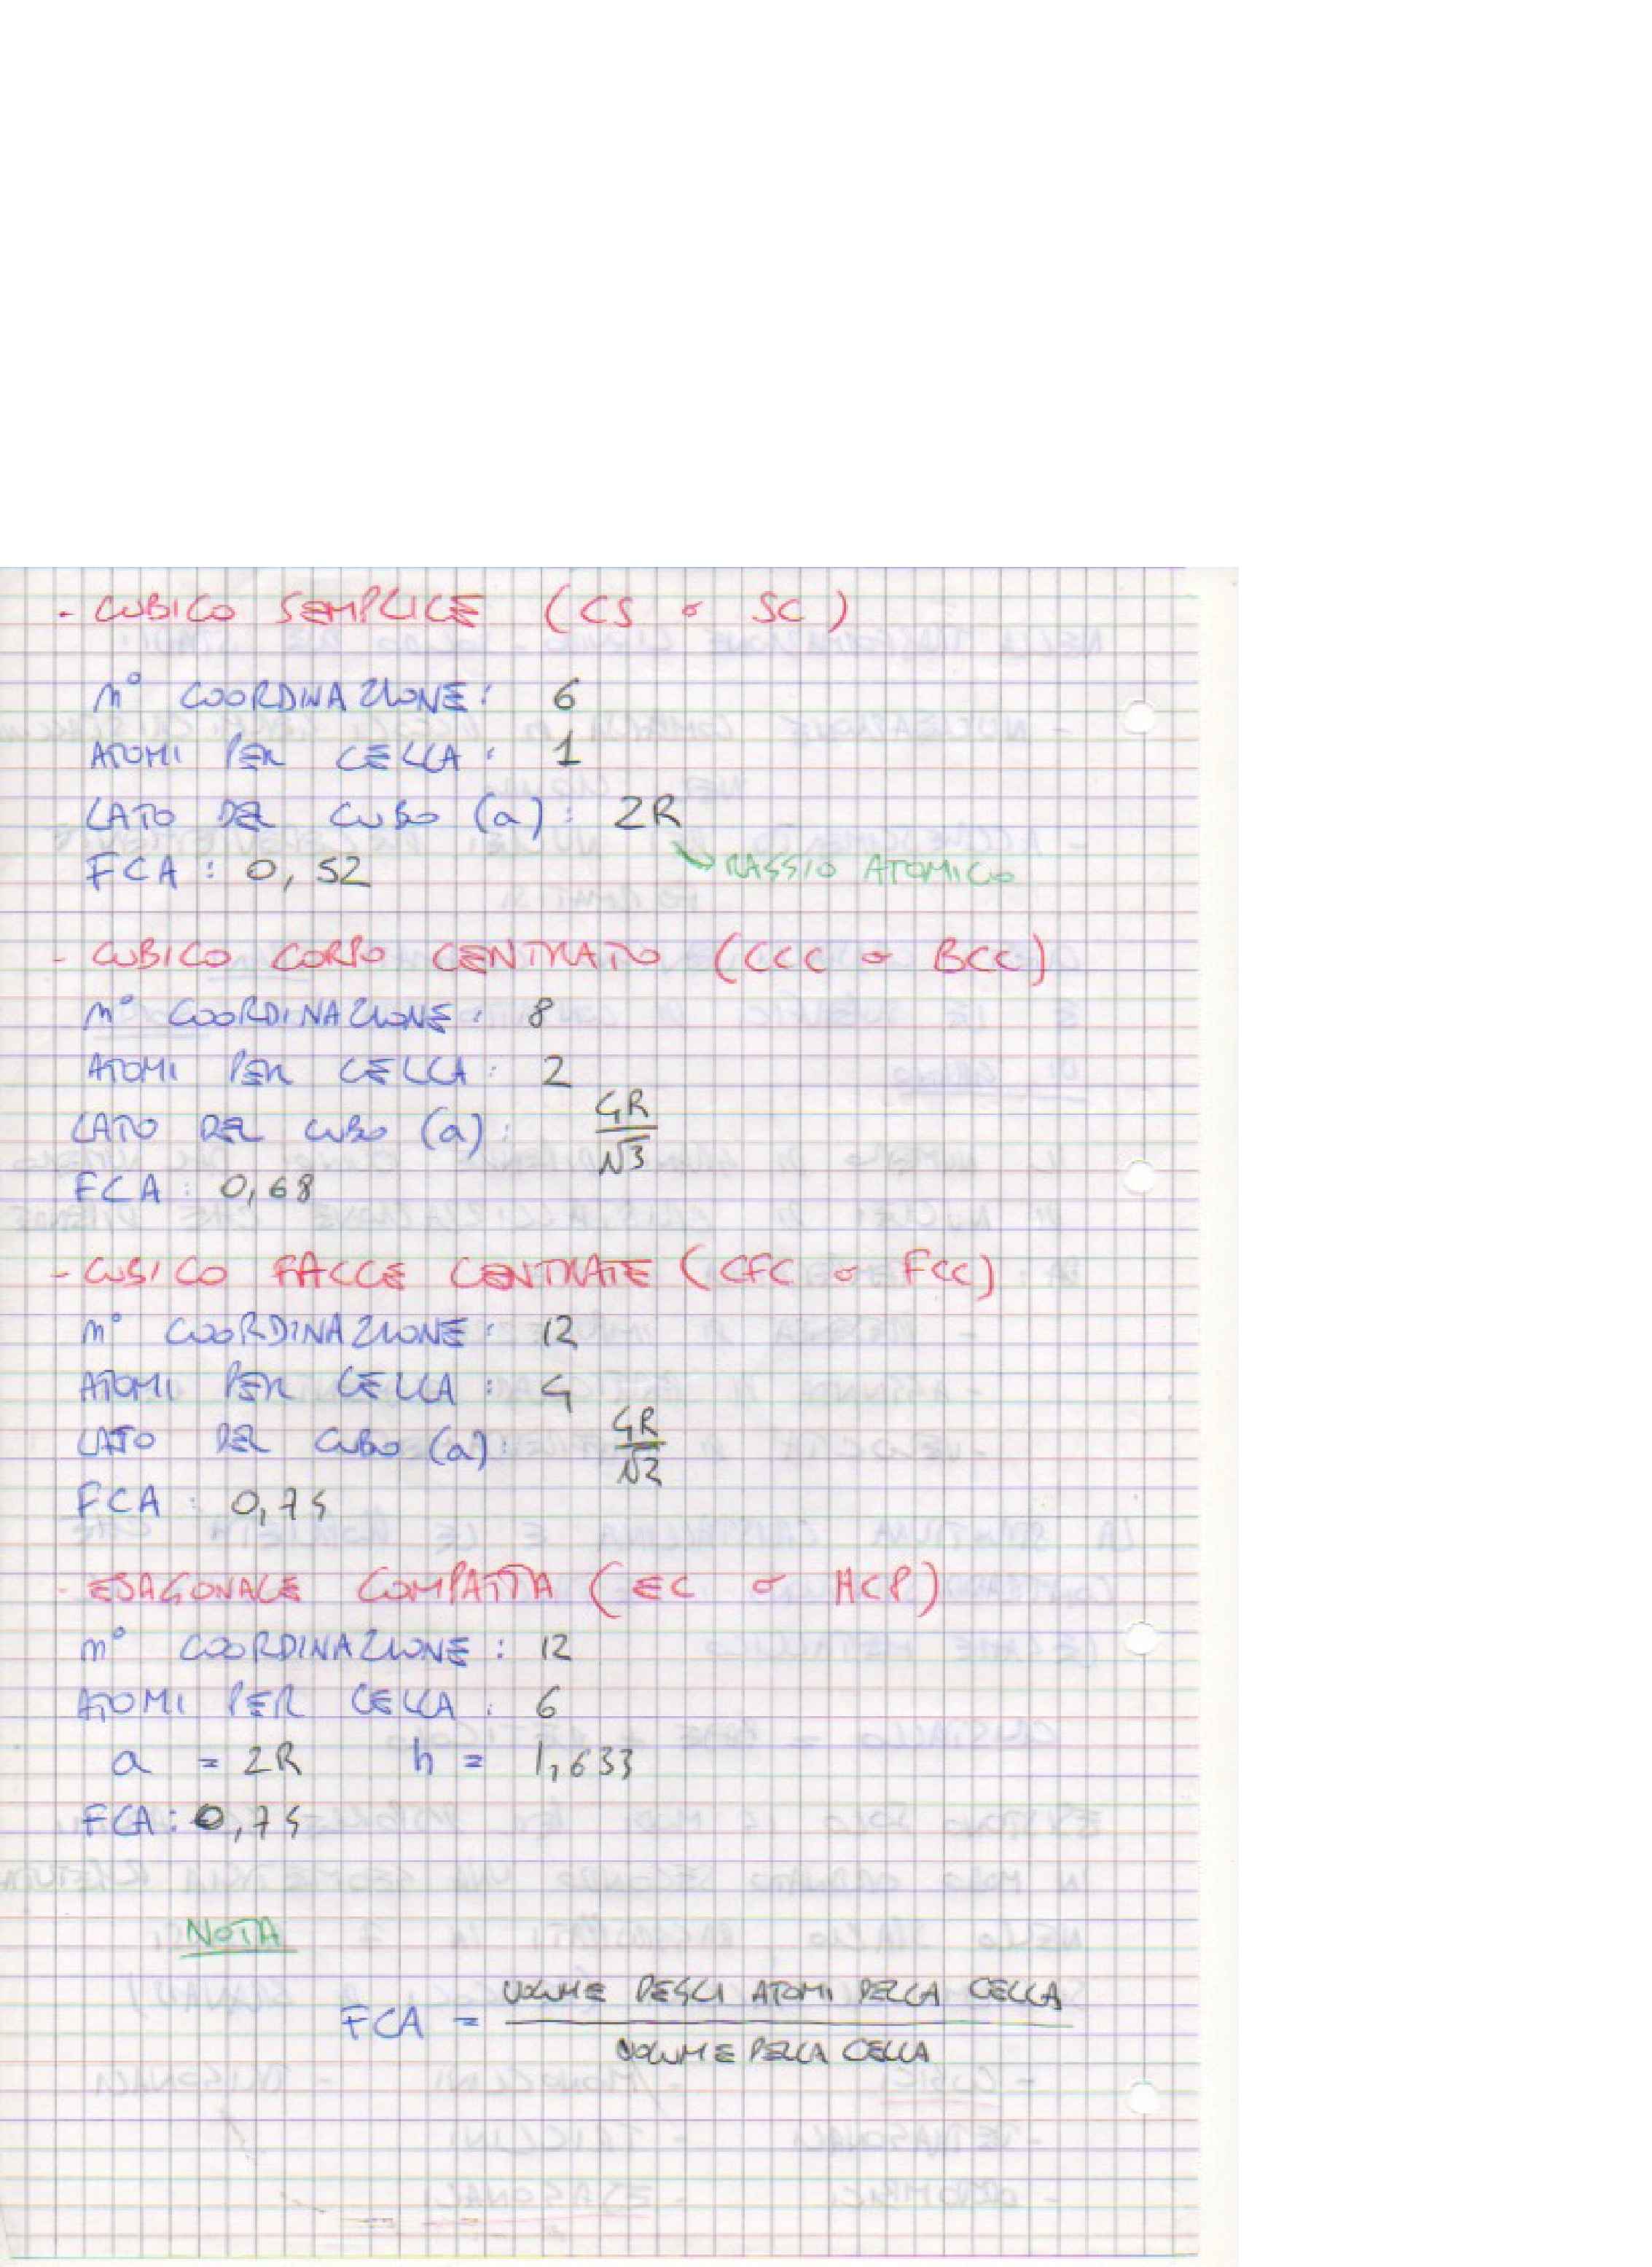 - CUBICO SEMPLICE (CS o SC)
n° COORDINAZIONE: 6
ATOMI PER CELLA: 1
LATO DEL CUBO (a): 2R
RAGGIO ATOMICO
FCA: 0,52
- CUBICO CORPO CENTRATO (CCC o BCC)
n° COORDINAZIONE: 8
ATOMI PER CELLA: 2
LATO DEL CUBO (a): 4R/√3
FCA: 0,68
- CUBICO FACCE CENTRATE (CFC o FCC)
n° COORDINAZIONE: 12
ATOMI PER CELLA: 4
LATO DEL CUBO (a): 4R/√2
FCA: 0,74
- ESAGONALE COMPATTA (EC o HCP)
n° COORDINAZIONE: 12
ATOMI PER CELLA: 6
a = 2R h = 1,633
FCA: 0,74
NOTA
FCA = VOLUME DEGLI ATOMI DELLA CELLA
VOLUME DELLA CELLA